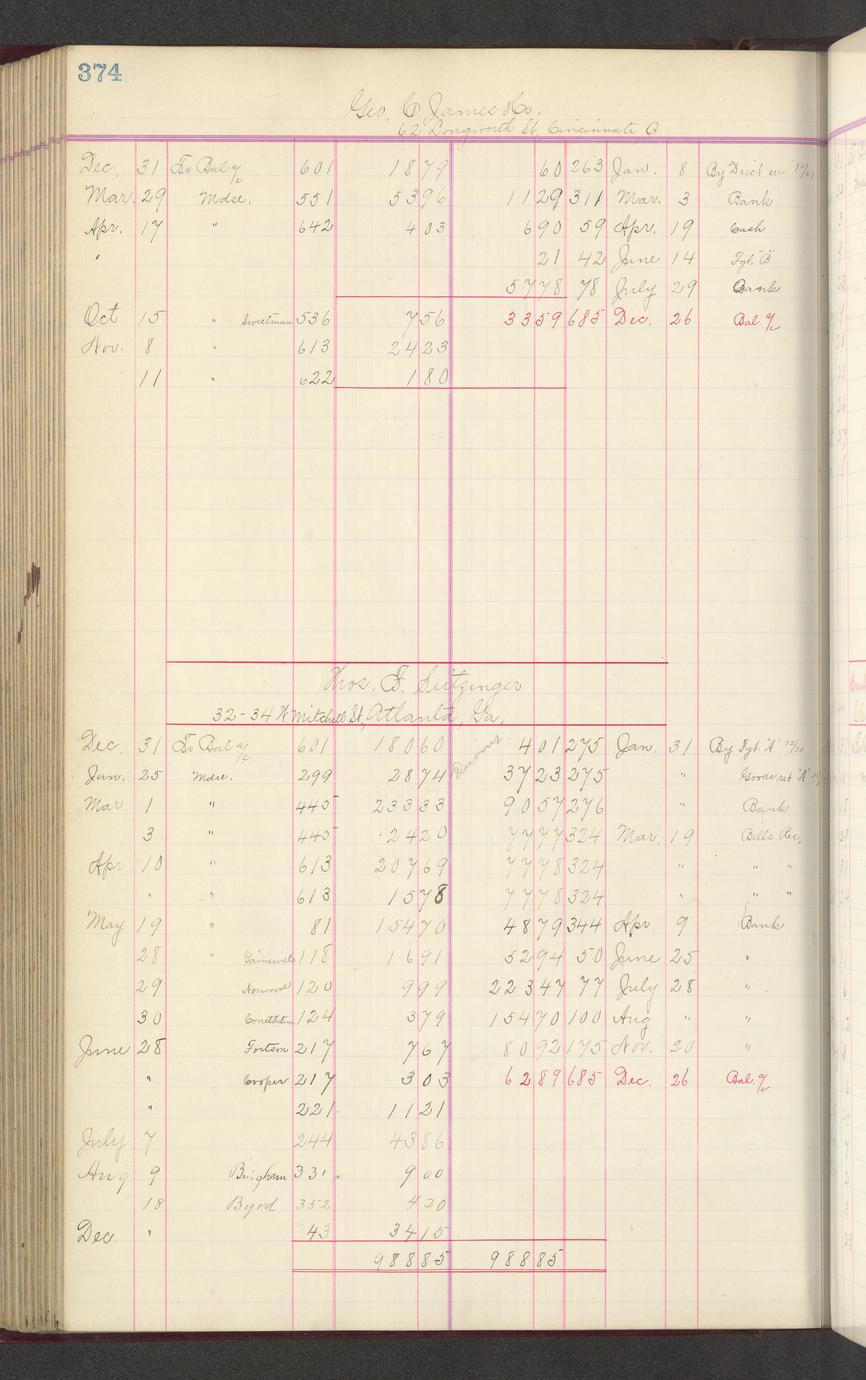 374
Geo. C. James & Co.
62 Longworth St, Cincinnati, O
Dec. 31 To Bal a/c 601 18 79 60 263 Jan. 8 By Duct err 12/21
Mar. 29 Mdse. 551 53 96 11 29 311 Mar. 3 Bank
Apr. 17 " 642 4 03 6 90 59 Apr. 19 Cash
" 21 42 June 14 Fgt. "B"
57 78 78 July 29 Bank
Oct 15 " Sweetman 536 7 56 33 59 685 Dec. 26 Bal. a/c
Nov. 8 " 613 24 23
11 " 622 1 80
Thos. F. Seitzinger
32-34 W Mitchell St, Atlanta, Ga,
Dec. 31 To Bal a/c 601 180 60 4 01 275 Jan. 31 By Fgt "A" 12/30
Jan. 25 Mdse. 299 28 74 37 23 275 " Goods ret "A"
Mar. 1 " 445 233 33 90 57 276 " Bank
3 " 445 24 20 77 77 324 Mar. 19 Bills Rec.
Apr. 10 " 613 207 69 77 78 324 " " "
" " 613 15 78 77 78 324 " " "
May 19 " 81 154 70 48 79 344 Apr. 9 Bank
28 " 118 16 91 52 94 50 June 25 "
29 Norwood 120 9 99 223 47 77 July 28 "
30 Constitution 124 3 79 154 70 100 Aug " "
June 28 Fortson 217 7 67 80 92 175 Nov. 20 "
" Cooper 217 3 03 62 89 685 Dec. 26 Bal. a/c
" 221 11 21
July 7 244 43 86
Aug 9 Bingham 331 9 00
18 Byrd 352 4 30
Dec. " 43 34 15
988 85 988 85